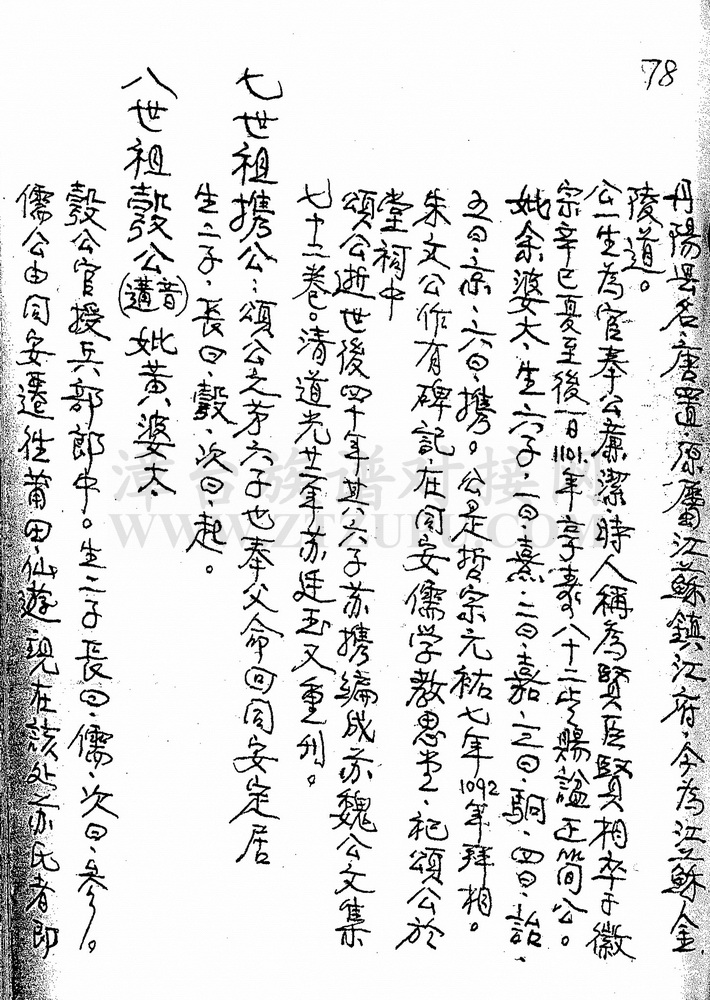 78
丹陽县名·唐置·原屬江苏鎮江府·今為江苏金
陵道。
公一生為官奉公廉潔·時人稱為賢臣賢相卒于徽
宗辛巳夏至後一日1101.年享寿八十二岁賜諡正简公。
妣余婆太·生六子·一曰·熹·二曰·嘉·三曰·駉·四曰·詒·
五曰·京·六曰·携。公是哲宗元祐七年1092年拜相。
朱文公作有碑記·在同安儒学教思堂·祀頌公於
堂祠中
頌公逝世後四十年其六子苏携編成苏魏公文集
七十二卷。清道光廿二年苏廷玉又重刊。
七世祖携公：頌公之第六子也奉父命回同安定居
生二子·長曰·彀·次曰·起。
八世祖彀公(音遘)妣黄婆太·
彀公官授兵部郎中。生二子長曰·儒·次曰·参。
儒公由同安遷往莆田·仙遊現在該处苏氏者即
漳台族谱对接网
WWW.ZTZUPU.COM